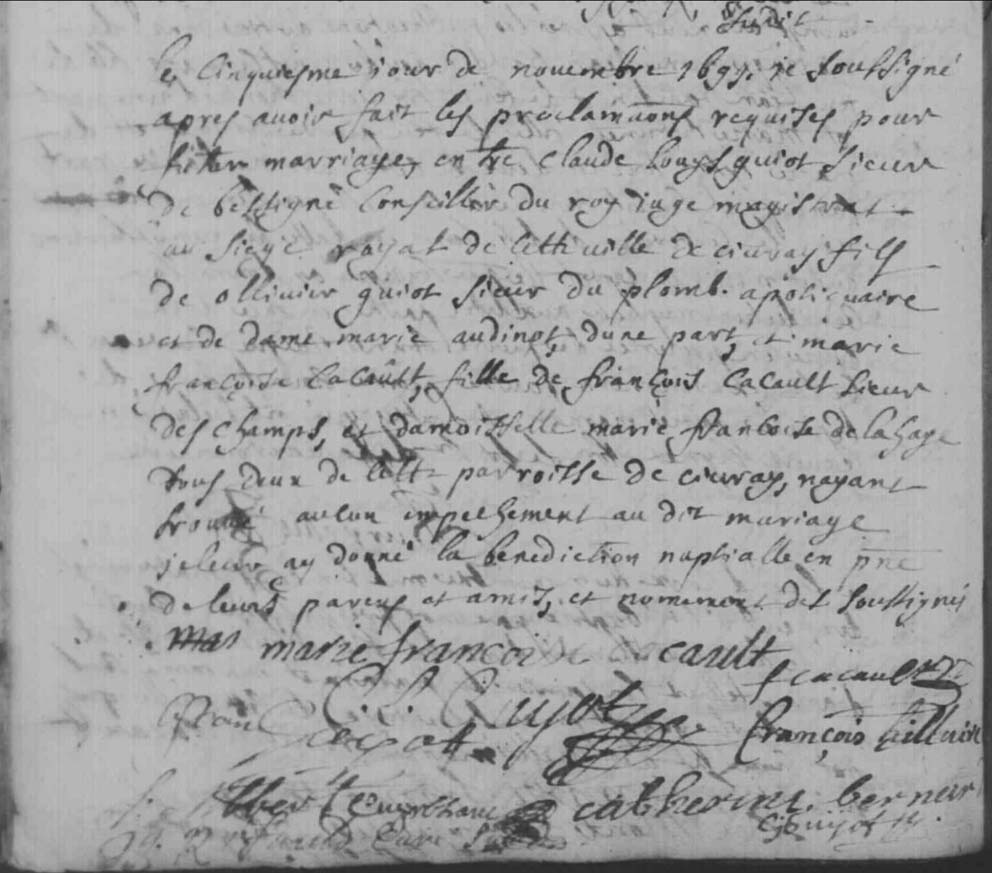 le cinquiesme jour de novembre 1699. je soussigné
apres avoir fait les proclamaons requises pour
marriage, entre claude louys guiot, sieur
de conseiller du roy juge magistrat
au siege royal de cette ville de civray fils
de ollivier guiot sieur du plomb. apoticquaire
et de dame marie audinet, d'une part, et marie
françoise cacault, fille de françois cacault sieur
des champs, et damoisselle marie franboise de la haye
tous deux de cette parroisse de civray, nayant
trouvé aucun impeschement au dit mariage
je leur ay donné la benediction nuptialle en pnce
de leurs parens et amis, et nomément des soussignés
mar marie françoise cacault
f cacault
C. L. Guyot
françois
catherine. bernar
Guiot